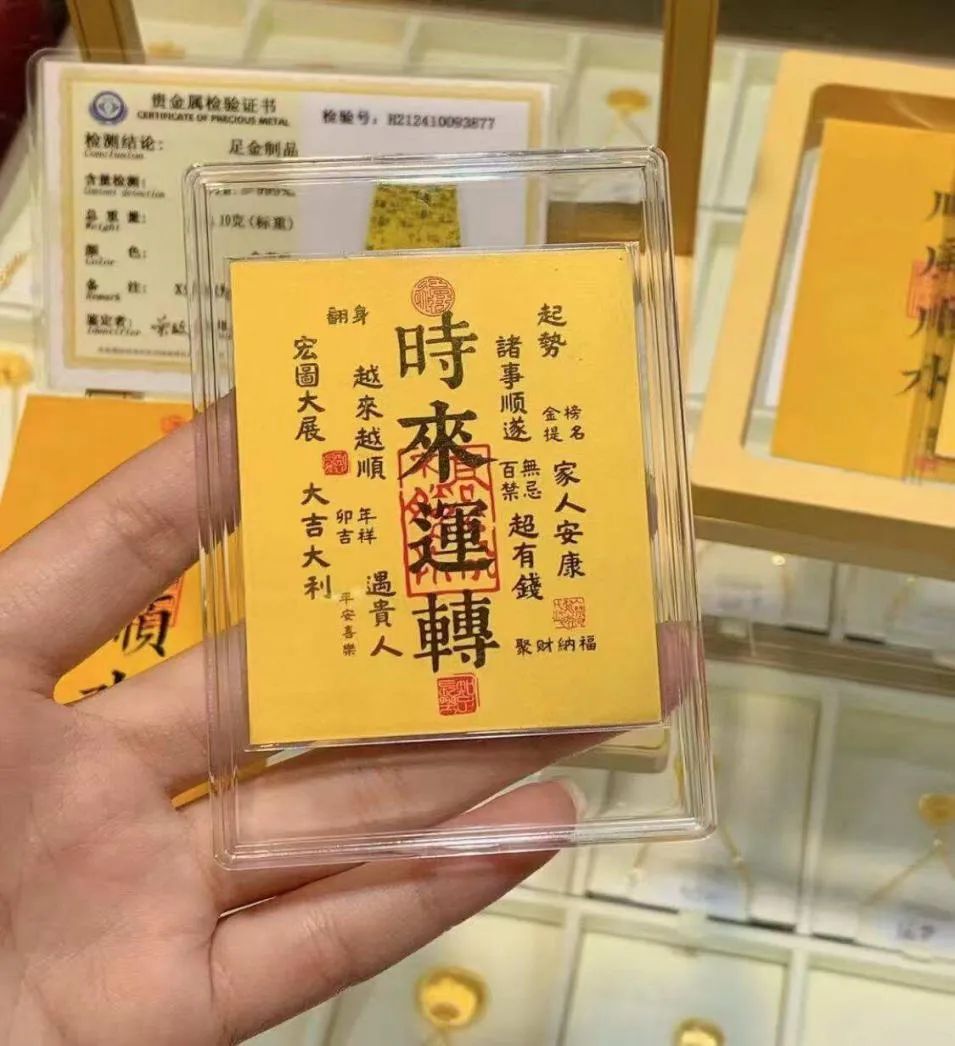 贵金属检验证书
CERTIFICATE OF PRECIOUS METAL
检验号: H212410093877
检测结论: 足金制品
Conclusion
含量检测:
总重量: 10克(标重)
Weight
颜色:
Color
备注:
Remark
鉴定者:
Identifier
起勢
諸事順遂
金榜提名
百無禁忌
家人安康
超有錢
聚财納福
時來運轉
翻身
越來越順
卯年吉祥
遇貴人
宏圖大展
大吉大利
平安喜樂
順